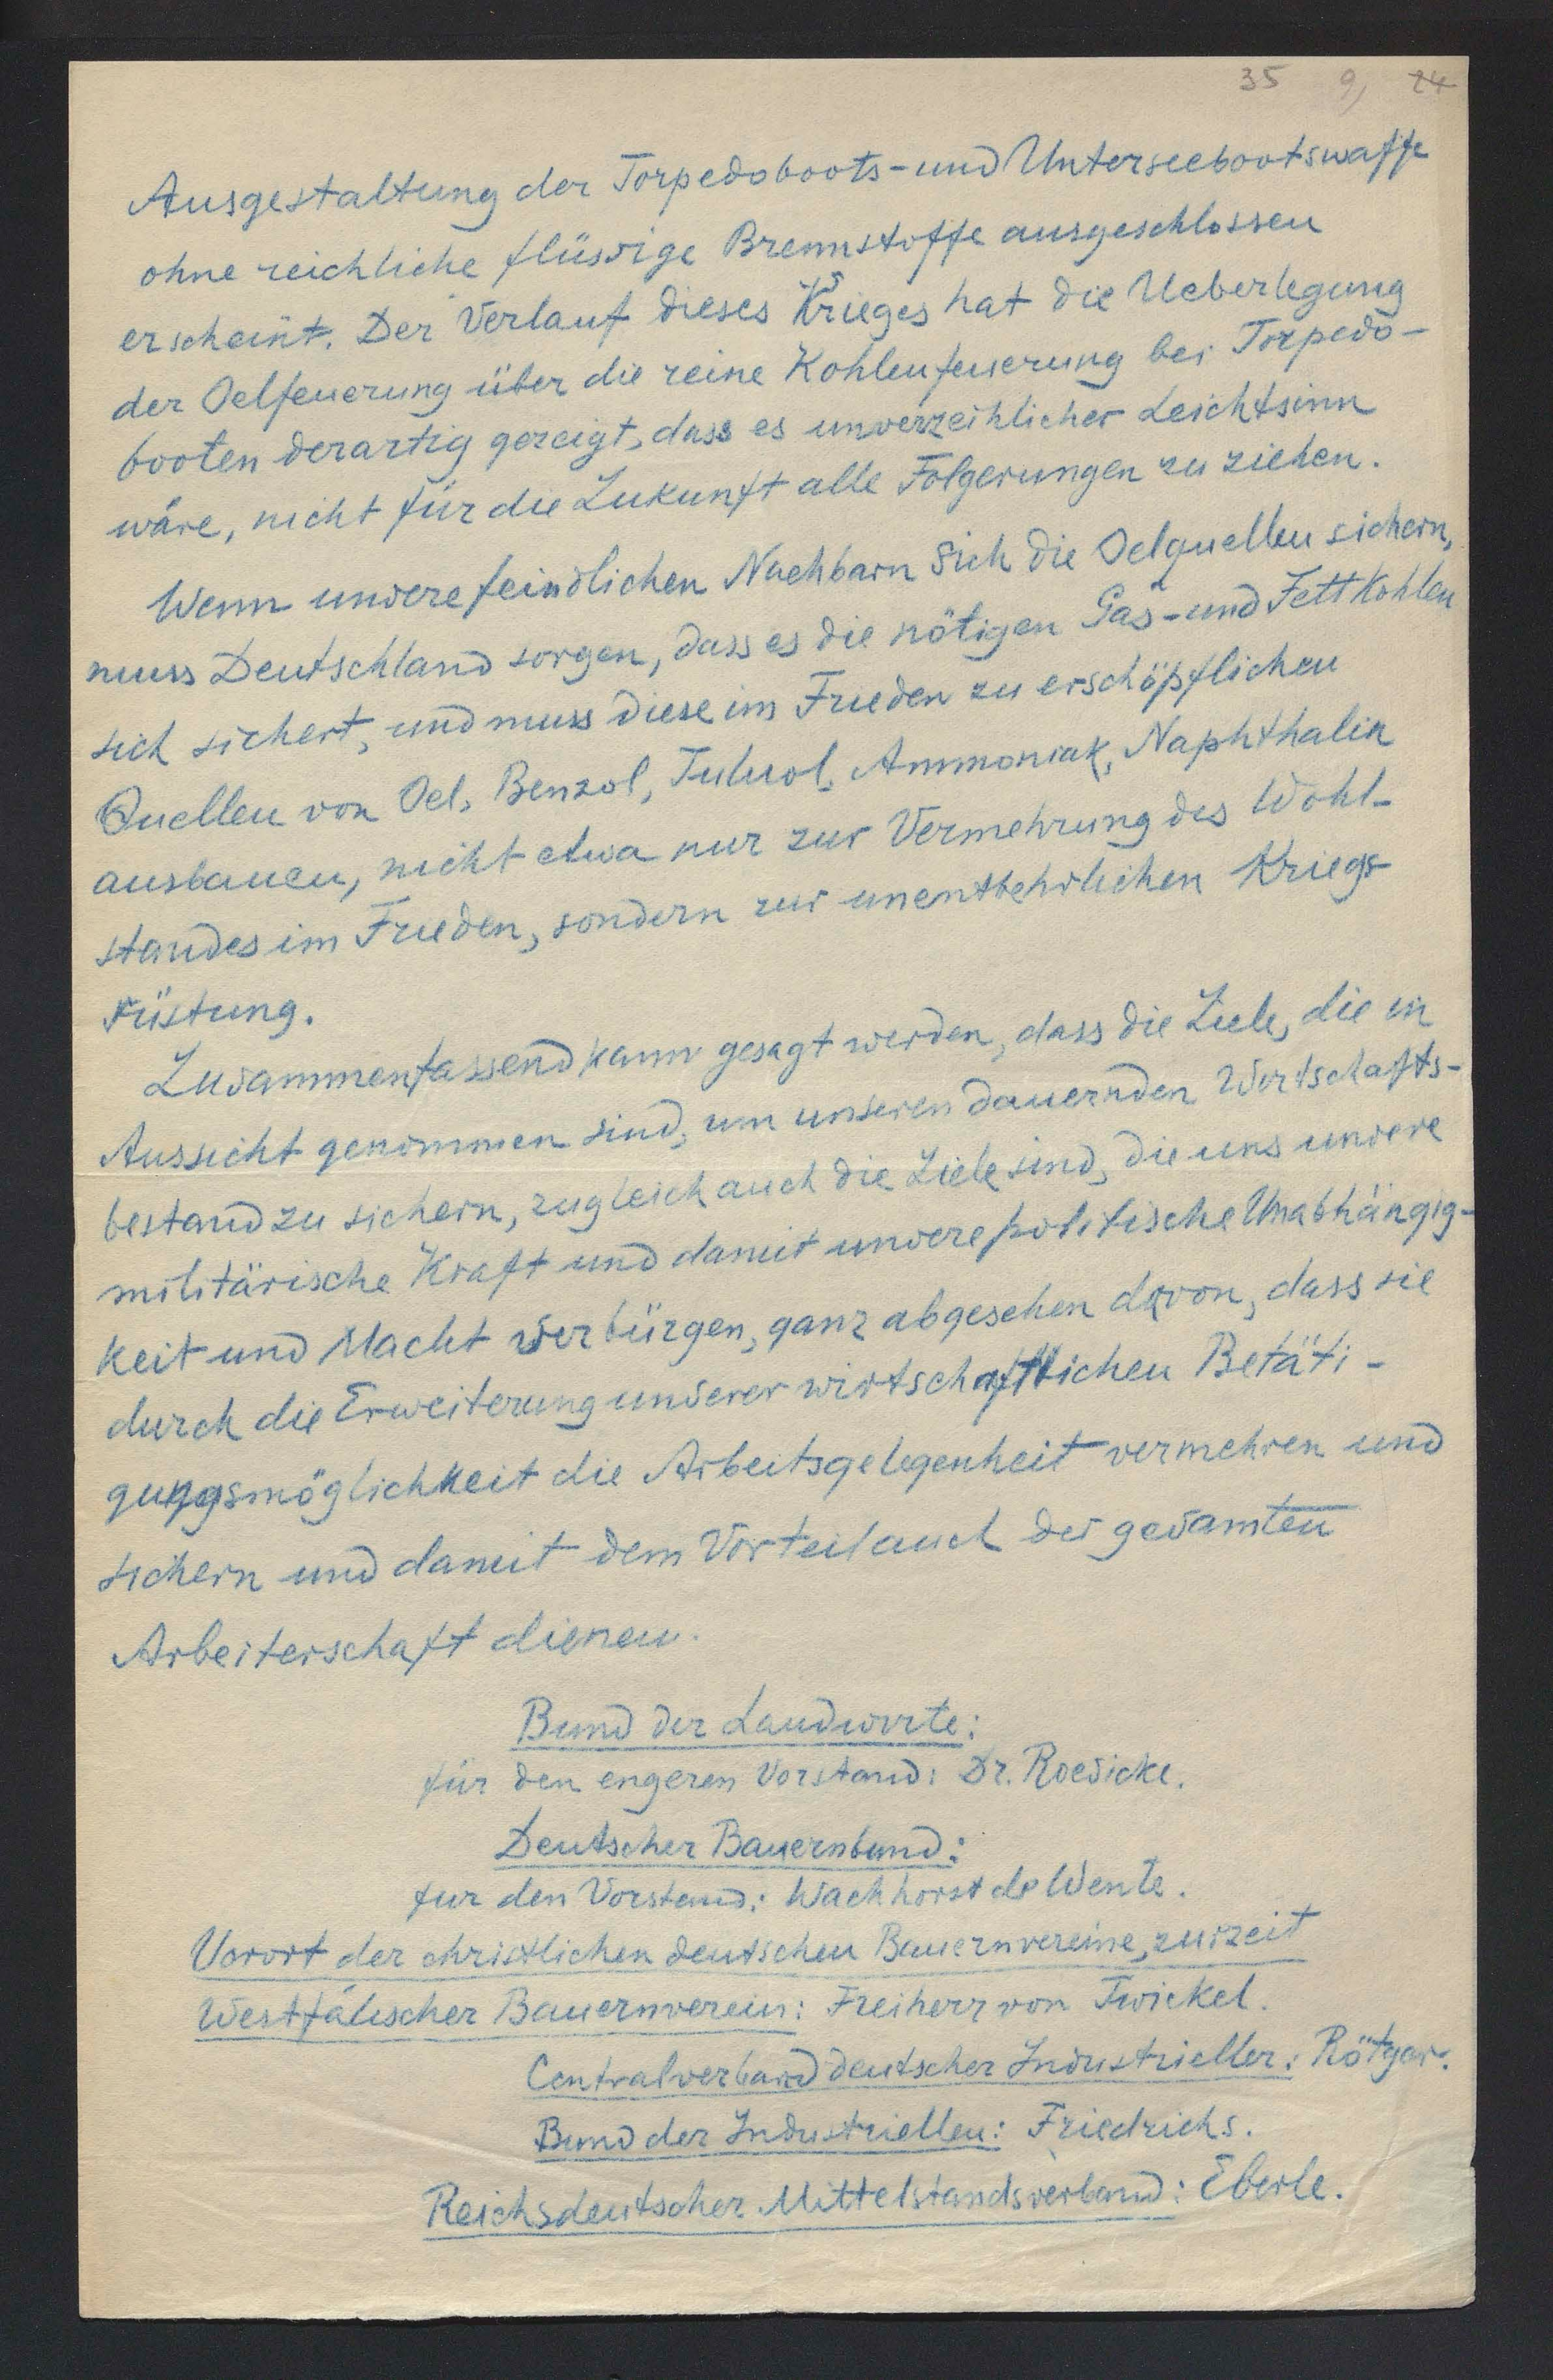 35 9, 24
Ausgestaltung der Torpedoboots-und Unterseebootswaffe
ohne reichliche flüssige Brennstoffe ausgeschlossen
erscheint. Der Verlauf dieses Krieges hat die Ueberlegung
der Oelfeuerung über die reine Kohlenfeuerung bei Torpedo-
booten derartig gezeigt, dass es unverzeihlicher Leichtsinn
wäre, nicht für die Zukunft alle Folgerungen zu ziehen.
Wenn unsere feindlichen Nachbarn sich die Oelquellen sichern,
muss Deutschland sorgen, dass es die nötigen Gas-und Fettkohlen
sich sichert, und muss diese im Frieden zu erschöpflichen
Quellen von Oel, Benzol, Tuluol, Ammoniak, Naphthalin
ausbauen, nicht etwa nur zur Vermehrung des Wohl-
standes im Frieden, sondern zur unentbehrlichen Kriegs-
rüstung.
Zusammenfassend kann gesagt werden, dass die Ziele, die in
Aussicht genommen sind, um unseren dauernden Wirtschafts-
bestand zu sichern, zugleich auch die Ziele sind, die uns unsere
militärische Kraft und damit unsere politische Unabhängig-
keit und Macht verbürgen, ganz abgesehen davon, dass sie
durch die Erweiterung unserer wirtschaftlichen Betäti-
gungsmöglichkeit die Arbeitsgelegenheit vermehren und
sichern und damit dem Vorteil auch der gesamten
Arbeiterschaft dienen.
Bund der Landwirte:
für den engeren Vorstand: Dr. Roesicke.
Deutscher Bauernbund:
fur den Vorstand: Wachhorst de Wente.
Vorort der christlichen deutschen Bauernvereine, zurzeit
Westfälischer Bauernverein: Freiherr von Twickel.
Centralverband deutscher Industrieller: Rötger.
Bund der Industriellen: Friedrichs.
Reichsdeutscher Mittelstandsverband: Eberle.